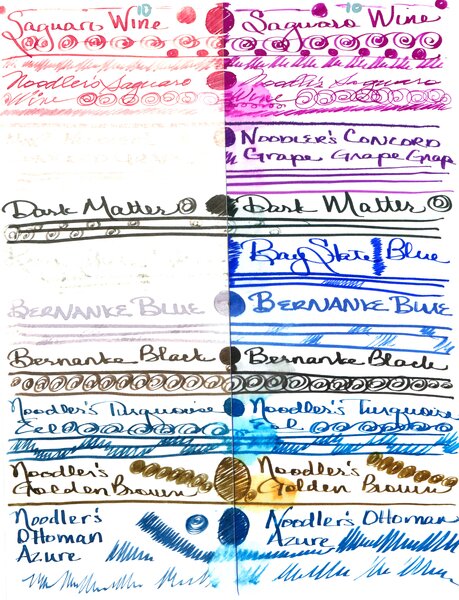 10
Saguaro Wine
Noodler's Saguaro
Wine
Dark Matter
Bernanke Blue
Bernanke Black
Noodler's Turquoise
Eel
Noodler's
Golden Brown
Noodler's
Ottoman
Azure
10
Saguaro Wine
Noodler's Saguaro
Wine
Noodler's Concord
Grape Grape Grap
Dark Matter
Bay State Blue
Bernanke Blue
Bernanke Black
Noodler's Turquoise
Eel
Noodler's
Golden Brown
Noodler's Ottoman
Azure